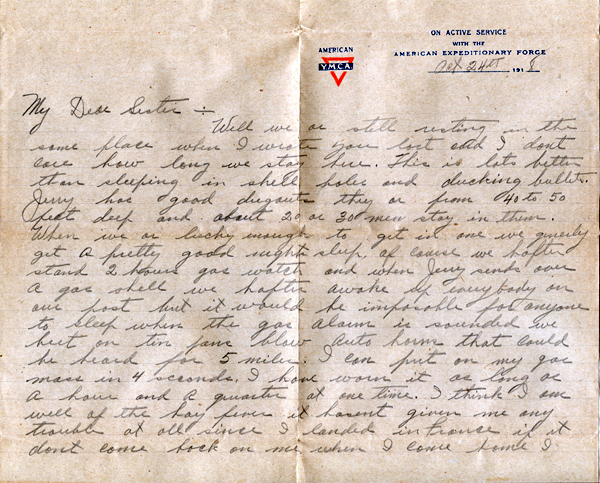 ON ACTIVE SERVICE
WITH THE
AMERICAN EXPEDITIONARY FORCE
AMERICAN
YMCA
Oct 24st 1918
My Dear Sister :-
Well we or still resting in the
same place when I wrote you last and I dont
care how long we stay here. This is lots better
than sleeping in shell holes and ducking bullets.
Jerry has good dugouts they or from 40 to 50
feet deep and about 20 or 30 men stay in them.
When we or lucky enough to get in one we generly
get a pretty good nights sleep, of course we hafter
stand 2 hours gas watch and when Jerry sends over
a gas shell we hafter awake up everybody on
our post but it would be imposable for anyone
to sleep when the gas alarm is sounded we
beat on tin pans blow auto horns that could
be heard for 5 miles. I can put on my gas
mass in 4 seconds. I have worn it as long as
a hour and a quarter at one time. I think I am
well of the hay fever it hasent given me any
trouble at all since I landed in France if it
dont come back on me when I come home I